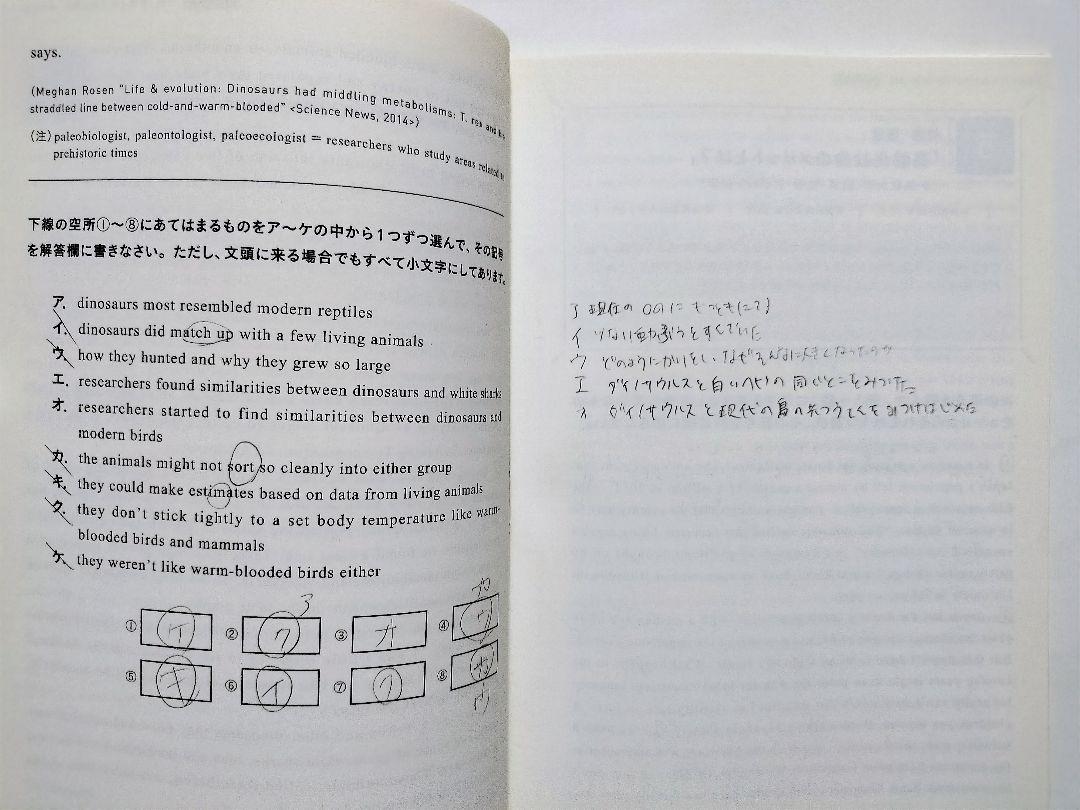 says.
(Meghan Rosen "Life & evolution: Dinosaurs had middling metabolisms: T. rex and
straddled line between cold-and-warm-blooded" <Science News, 2014>)
(注) paleobiologist, paleontologist, paleoecologist = researchers who study areas related to
prehistoric times
下線の空所①〜⑧にあてはまるものをア〜ケの中から1つずつ選んで、その記号
を解答欄に書きなさい。ただし、文頭に来る場合でもすべて小文字にしてあります。
ア. dinosaurs most resembled modern reptiles
イ. dinosaurs did match up with a few living animals
ウ. how they hunted and why they grew so large
エ. researchers found similarities between dinosaurs and white sharks
オ. researchers started to find similarities between dinosaurs and
modern birds
カ. the animals might not sort so cleanly into either group
キ. they could make estimates based on data from living animals
ク. they don't stick tightly to a set body temperature like warm-
blooded birds and mammals
ケ. they weren't like warm-blooded birds either
ア
カ
① ケ ② ク ③ オ ④ ウ
⑤ キ ⑥ イ ⑦ ⑧ カ
ウ
ア 現在の
イ
ウ どのようにかりをし、なぜそんなに大きくなったのか
エ ダイノサウルスと白い
オ ダイノサウルスと現代の鳥の